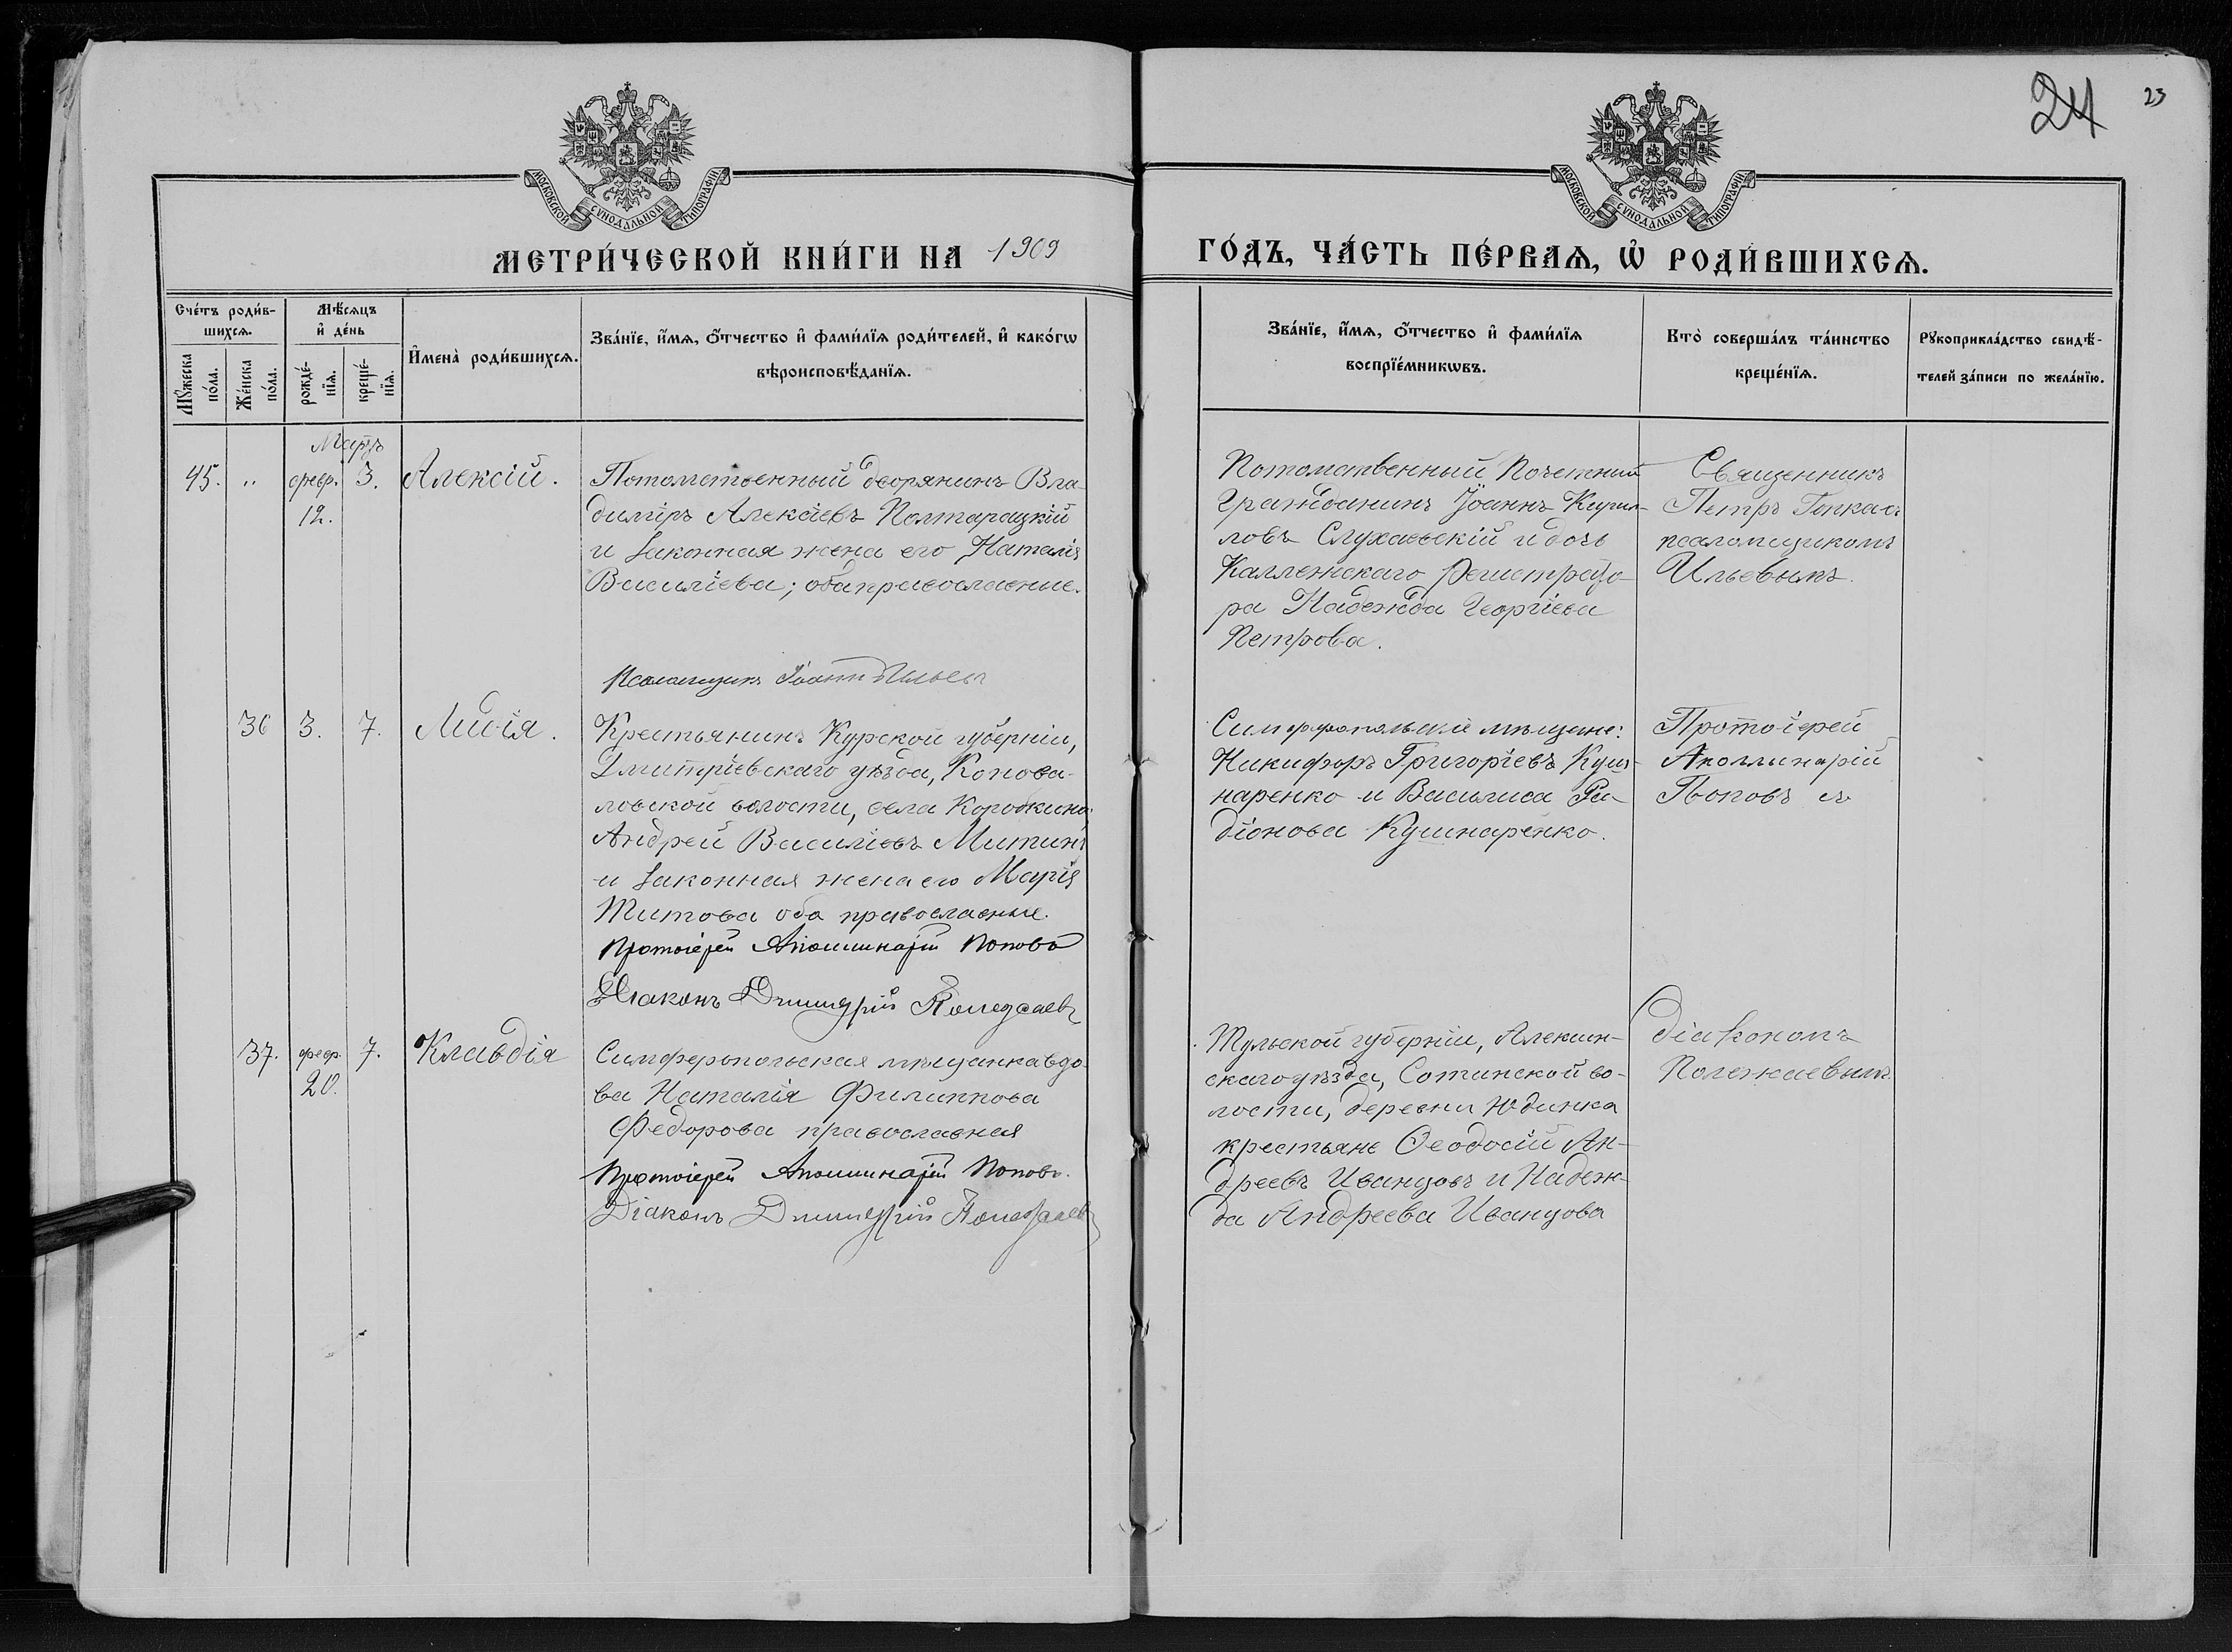 24 23
МОСКОВСКОЙ СѴНОДАЛЬНОЙ ТИПОГРАФІИ
МОСКОВСКОЙ СѴНОДАЛЬНОЙ ТИПОГРАФІИ
МЕТРИ́ЧЕСКОЙ КНИ́ГИ НА 1909
ГО́ДЪ, ЧА́СТЬ ПЕ́РВАѦ, Ѡ҆ РОДИ́ВШИХСѦ.
Сче́тъ роди́в-
шихсѧ.
Мꙋ́жеска
по́ла.
Же́нска
по́ла.
Мѣ́сѧцъ
и҆ де́нь
рожде́-
нїѧ.
креще́-
нїѧ.
И҆мена̀ роди́вшихсѧ.
Зва́нїе, и҆́мѧ, ѻ҆́тчество и҆ фами́лїѧ роди́телей, и҆ како́гѡ
вѣроисповѣ́данїѧ.
Зва́нїе, и҆́мѧ, ѻ҆́тчество и҆ фами́лїѧ
воспрїе́мникѡвъ.
Кто̀ соверша́лъ та́инство
креще́нїѧ.
Рꙋкоприкла́дство свидѣ́-
телей за́писи по жела́нїю.
Мартъ
45. " февр. 3. Алексій.
12.
Потомственный дворянинъ Вла-
диміръ Алексіевъ Полтарацкій
и законная жена его Наталія
Василіева; оба православные.
Псаломщикъ Іоаннъ Ильевъ
Потомственный Почетный
Гражданинъ Іоаннъ Кирил-
ловъ Слухаевскій и дочь
Каллежскаго Регистрато-
ра Надежда Георгіева
Петрова.
Священникъ
Петръ съ
псаломщикомъ
Ильевымъ.
36 3. 7. Лидія.
Крестьянинъ Курской губерніи,
Дмитріевскаго уѣзда, Конова-
ловской волости, села Коробкина
Андрей Василіевъ Митинъ
и законная жена его Марія
Титова оба православные.
Протоіерей Аполлинарій Поповъ
Діаконъ Димитрій Полежаевъ
Симферопольскіе мѣщане:
Никифоръ Григоріевъ Куш-
наренко и Василиса Ра-
діонова Кушнаренко.
Протоіерей
Аполлинарій
Поповъ съ
37. февр. 7. Клавдія
20.
Симферопольская мѣщанка вдо-
ва Наталія Филиппова
Федорова православная
Протоіерей Аполлинарій Поповъ.
Діаконъ Димитрій Полежаевъ
Тульской губерніи, Алексин-
скаго уѣзда, Сотинской во-
лости, деревни Юдинка
крестьяне Ѳеодосій Ан-
дреевъ Иванцовъ и Надеж-
да Андреева Иванцова
діакономъ
Полежаевымъ.